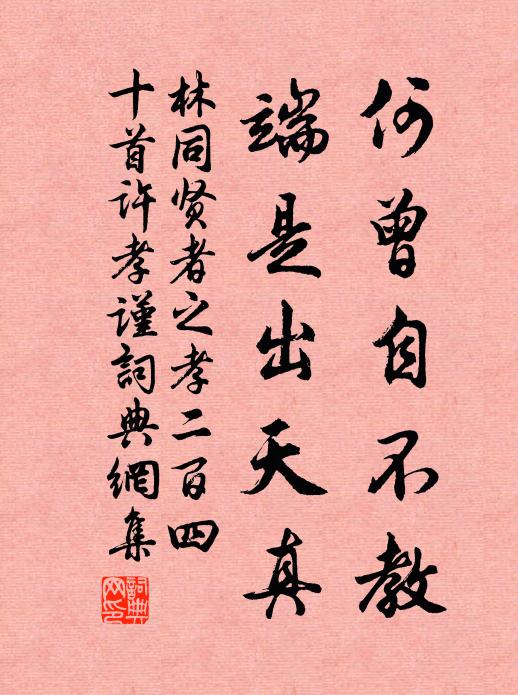 何曾自不教
端是出天真
林同贤者之孝二百四
十首许孝谨詞典網集
詞典网印